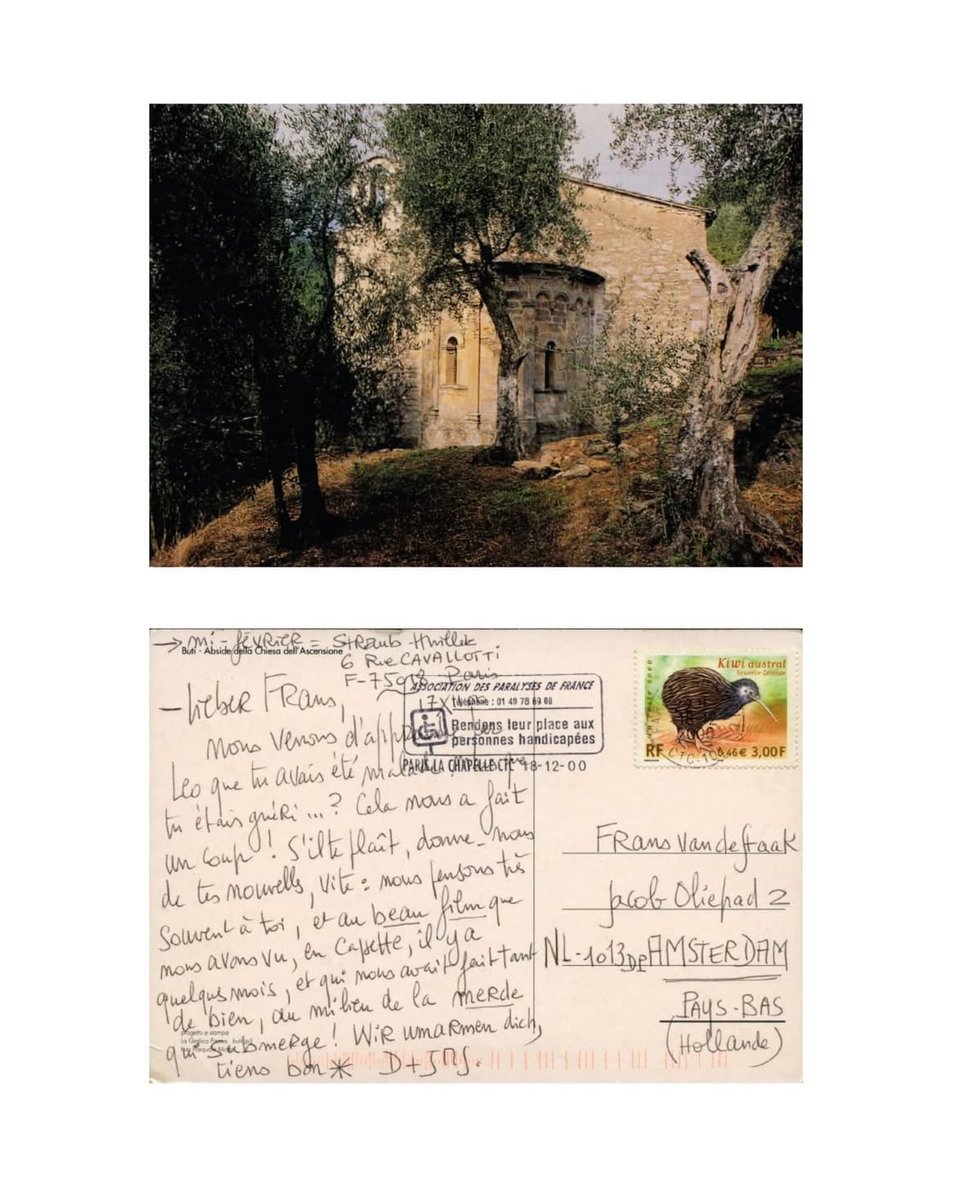 → mi-FÉVRIER = Straub-Huillet
Buti - Abside della Chiesa dell'Ascensione
6 Rue CAVALLOTTI
F-75018 Paris
17 XII 00
— Lieber Frans,
nous venons d'apprendre par
Leo que tu avais été malade
tu étais guéri...? Cela nous a fait
un coup! S'il te plaît, donne-nous
de tes nouvelles, vite: nous pensons très
souvent à toi, et au beau film que
nous avons vu, en cassette, il y a
quelques mois, et qui nous avait fait tant
de bien, au milieu de la merde
qui submerge! Wir umarmen dich,
tiens bon* D+JMS.
progetto e stampa
La Grafica Pisana
ASSOCIATION DES PARALYSES DE FRANCE
téléphone: 01 40 78 69 00
Rendons leur place aux
personnes handicapées
PARIS LA CHAPELLE CTC 18-12-00
Kiwi austral
Nouvelle-Zélande
LA POSTE 2000
RF 0,46€ 3,00F
Frans van de Staak
Jacob Oliepad 2
NL-1013DP AMSTERDAM
PAYS-BAS
(Hollande)